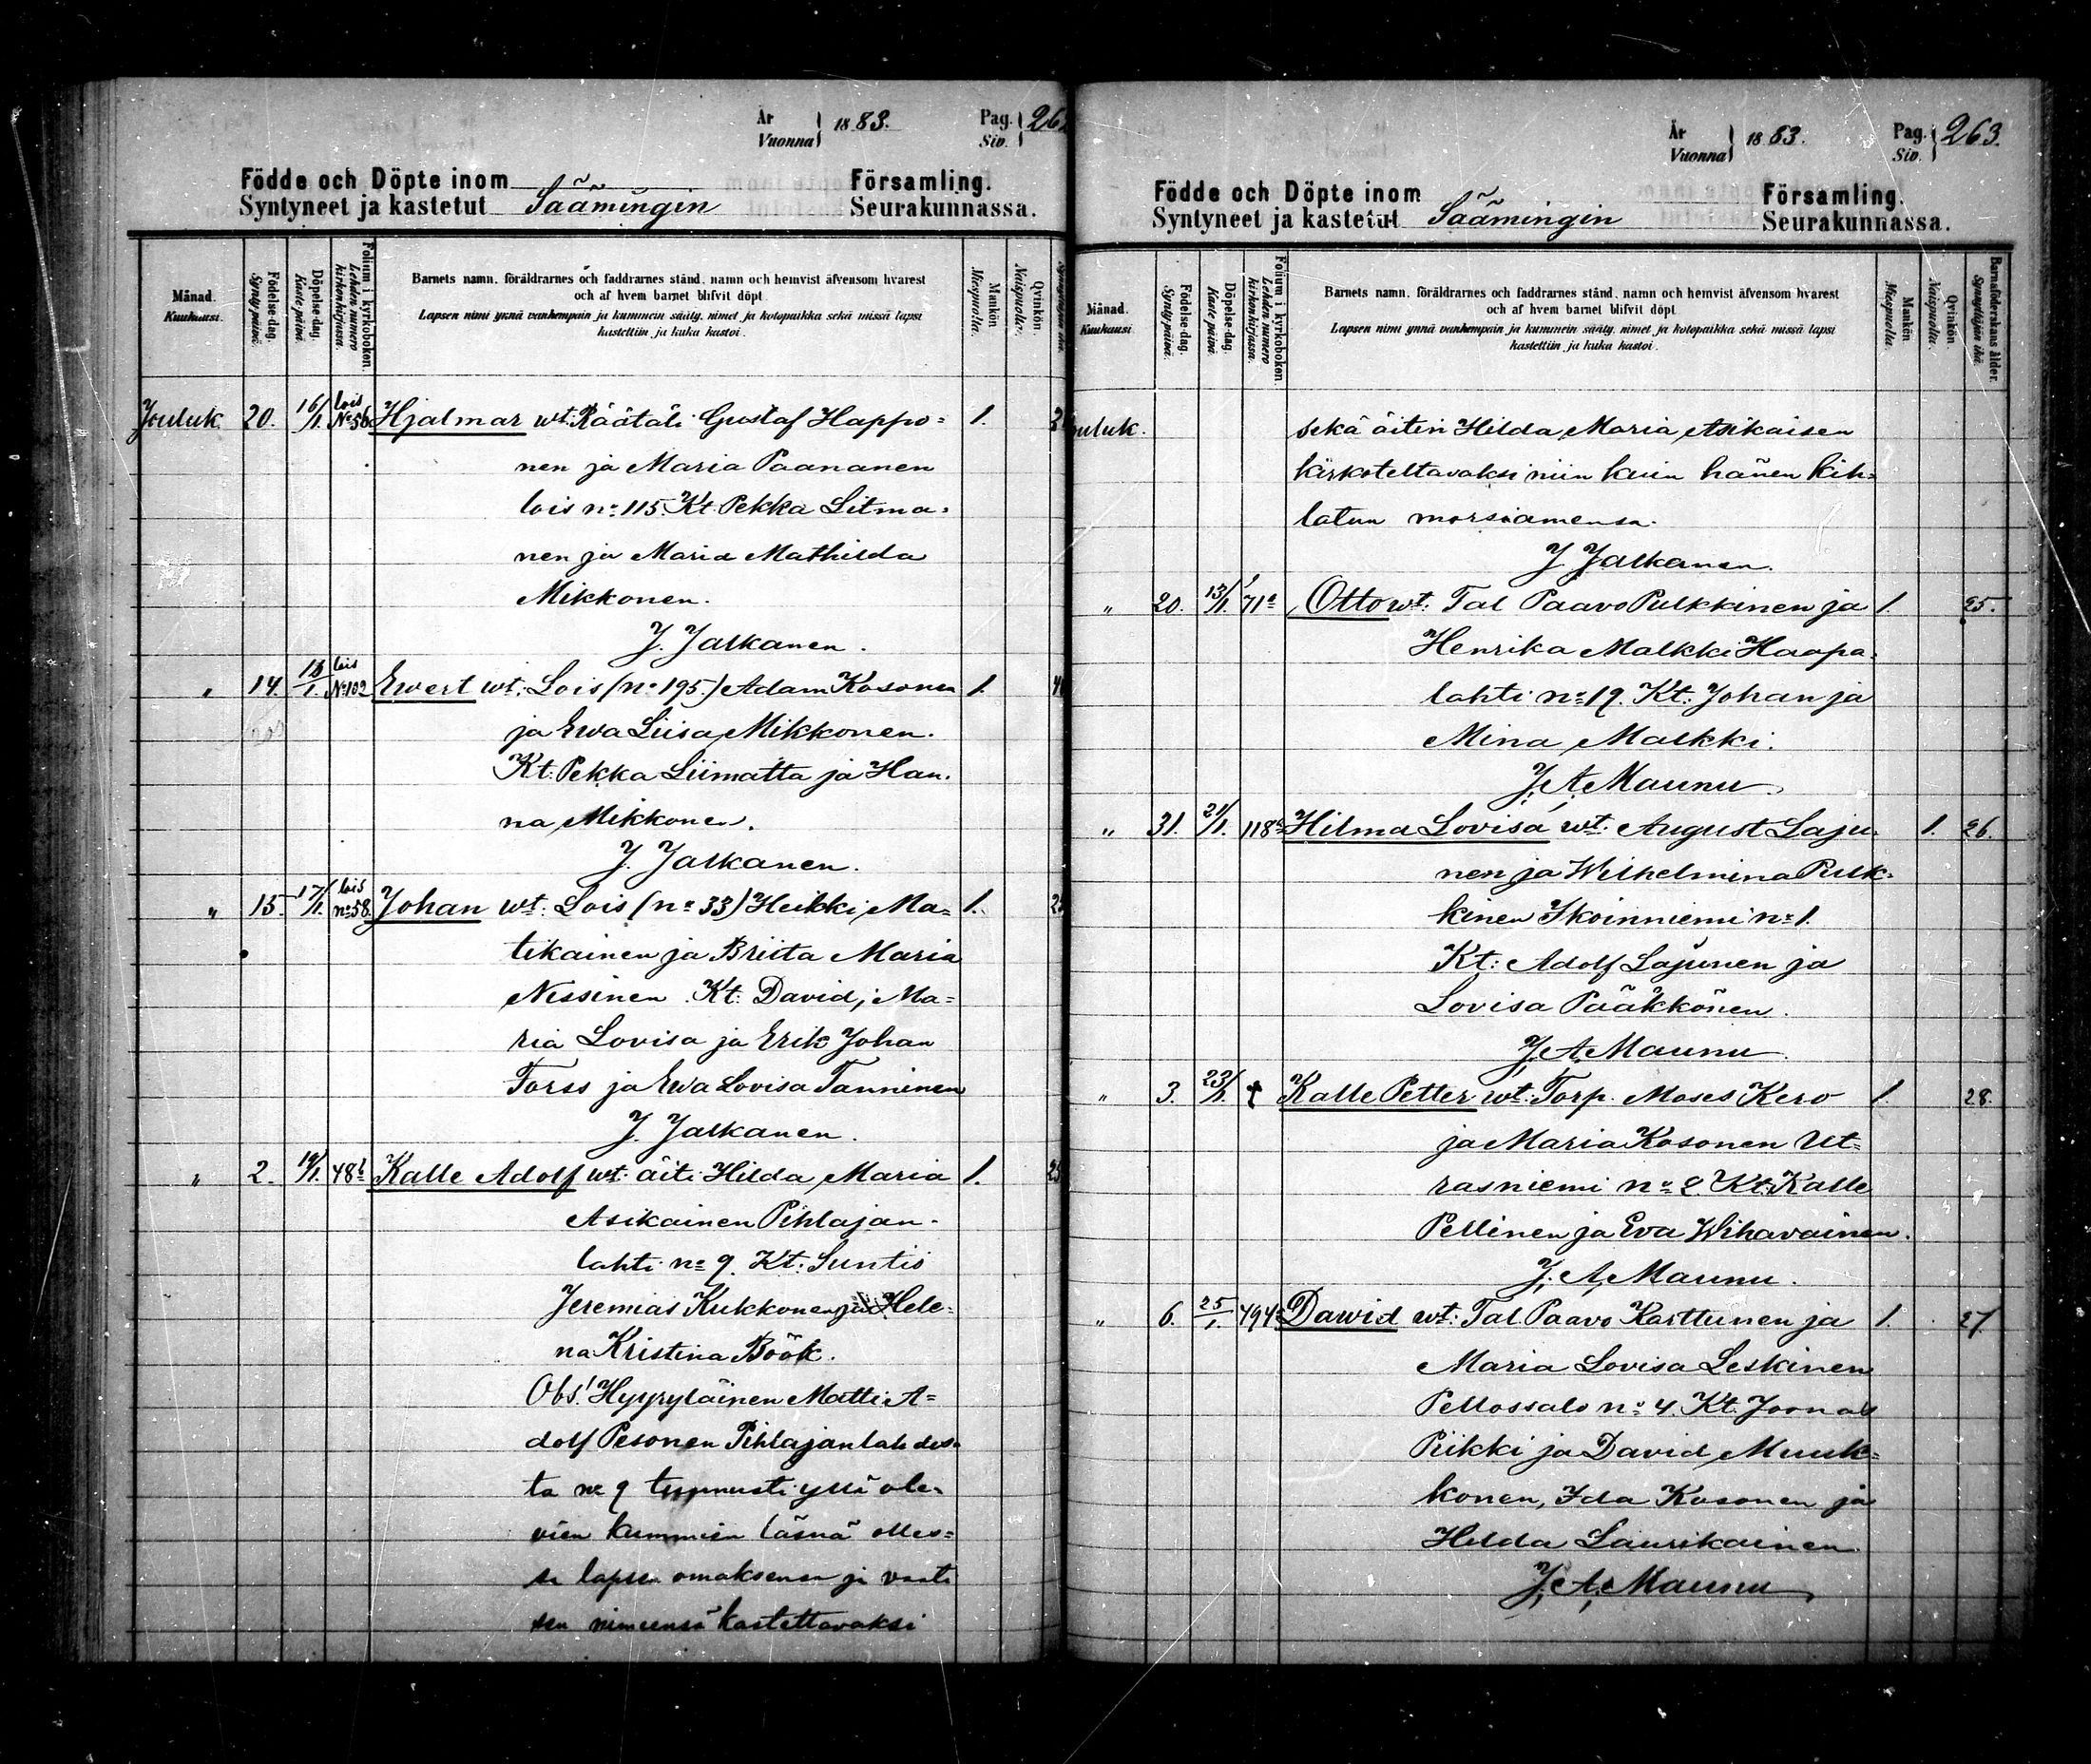 År
Vuonna 1883.
Pag.
Siv. 262
Födde och Döpte inom Församling.
Syntyneet ja kastetut Säämingin Seurakunnassa.
Månad.
Kuukausi.
Födelse-dag.
Syntypäivä.
Döpelse-dag.
Kaste päivä.
Folium i kyrkobokon.
Lehden numero
kirkonkirjassa.
Barnets namn, föräldrarnes och faddrarnes stånd, namn och hemvist äfvensom hvarest
och af hvem barnet blifvit döpt.
Lapsen nimi ynnä vanhempain ja kummein sääty, nimet ja kotopaikka sekä missä lapsi
kastettiin ja kuka kastoi.
Mankön
Miespuolia.
Qvinkön.
Naispuolia.
Jouluk. 20. 16/1. lois No 56 Hjalmar wt: Räätäli Gustaf Happo= 1.
nen ja Maria Paananen
lois no 115. Kt Pekka Litma=
nen ja Maria Mathilda
Mikkonen.
J. Jalkanen.
" 14. 13/1. lois No 102 Ewert wt: Lois (no 195.) Adam Kosonen 1.
ja Ewa Liisa Mikkonen.
Kt: Pekka Liimatta ja Han=
na Mikkonen.
J. Jalkanen.
" 15. 17/1. lois no 58. Johan wt: Lois (no 33) Heikki Ma= 1.
tikainen ja Briita Maria
Nissinen. Kt: David, Ma=
ria Lovisa ja Erik Johan
Torss ja Ewa Lovisa Tanninen
J. Jalkanen.
" 2. 19/1. 48b Kalle Adolf wt: äiti Hilda Maria 1.
Asikainen Pihlajan=
lahti no 9. Kt: Suntio
Jeremias Kukkonen ja Hele=
na Kristina Böök.
Obs! Hyypyläinen Matti A=
dolf Pesonen Pihlajanlahdes=
ta no 9 tunnusti yllä ole=
vien kummien läsnä olles=
sa lapsen omaksensa ja vaati
sen nimeensä kastettavaksi
År
Vuonna 1883.
Pag.
Siv. 263.
Födde och Döpte inom Församling.
Syntyneet ja kastetut Säämingin Seurakunnassa.
Månad.
Kuukausi
Födelse-dag.
Syntypäivä.
Döpelse-dag.
Kaste päivä.
Folium i kyrkobokon.
Lehden numero
kirkonkirjassa.
Barnets namn, föräldrarnes och faddrarnes stånd, namn och hemvist äfvensom hvarest
och af hvem barnet blifvit döpt.
Lapsen nimi ynnä vanhempain ja kummein sääty, nimet ja kotopaikka sekä missä lapsi
kastettiin ja kuka kastoi.
Mankön
Miespuolia.
Qvinkön.
Naispuolia.
Barnaföderskans ålder.
Synnyttäjän ikä.
ouluk. sekä äitin Hilda Maria Asikaisen
kirkoteltavaksi niin kuin hänen kih=
latun morsiamensa.
J Jalkanen.
" 20. 13/1. 71a Otto wt: Tal Paavo Pulkkinen ja 1. 25.
Henrika Malkki Haapa=
lahti no 19. Kt: Johan ja
Mina Malkki.
J. A. Maunu
" 31. 21/1. 118a Hilma Lovisa wt: August Laju= 1. 26.
nen ja Wilhelmina Pulk=
kinen Ikoinniemi no 1.
Kt: Adolf Lajunen ja
Lovisa Pääkkönen.
J. A. Maunu
" 3. 23/1. † Kalle Petter wt: Torp. Moses Kero 1. 28.
ja Maria Kosonen Ut=
rasniemi no 2. Kt: Kalle
Pellinen ja Eva Wihavainen.
J. A. Maunu.
" 6. 25/1. 494 Dawid wt: Tal Paavo Karttunen ja 1. 27.
Maria Lovisa Leskinen
Pellossalo no 4. Kt: Joonas
Piikki ja David Muuk=
konen, Ida Kosonen ja
Hilda Laurikainen
J. A. Maunu